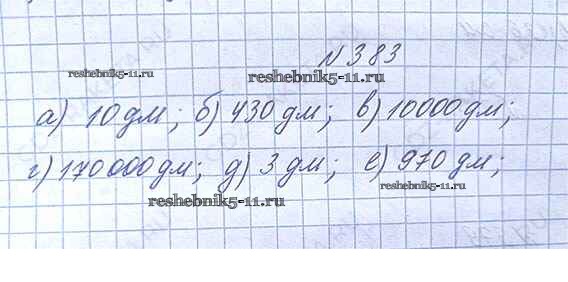 N 383
reshebnik5-11.ru
reshebnik5-11.ru
а) 10 дм; б) 430 дм; в) 10000 дм;
г) 170 000 дм; д) 3 дм; е) 970 дм;
reshebnik5-11.ru
reshebnik5-11.ru